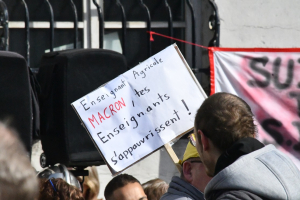 Enseignant Agricole
MACRON, tes
Enseignants
s'appauvrissent !
SU
S